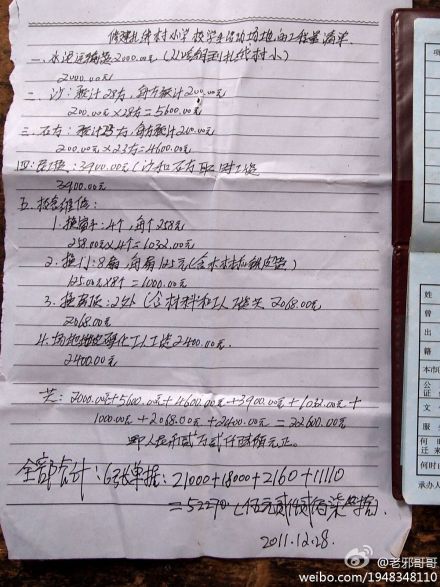 修建扎 村小学校学生活动场地的工程量清单
一、水泥运输费2000.00元(从 到扎 村小)
2000.00元
二、沙:预计28方,每方预计200.00元
200.00元×28方=5600.00元
三、石方:预计23方,每方预计200.00元
200.00元×23方=4600.00元
四:民工:3900.00元(沙和石方 工资
3900.00元
五、校舍维修:
1.换窗子:4个,每个258元
258.00元×4个=1032.00元
2.换门:8扇,每扇125元(含木材和 )
125.00元×8个=1000.00元
3. 2处(含材料和工人工资共2068.00元
2068.00元
4.场地 硬化工人工资2400.00元
2400.00元
共:2000.00+5600.00元+4600.00元+3900.00元+1032.00元+
1000.00元+2068.00元+2400.00元=22600.00元
即人民币贰万贰仟陆佰元正。
全部合计:6张单据:21000+18000+2160+11110
=52270(伍万贰仟贰佰柒拾)
2011.12.28.
姓
曾
出
籍
本市
公
证
文
服
何时
迁来
何时
承办人
@老邪哥哥
weibo.com/1948348110